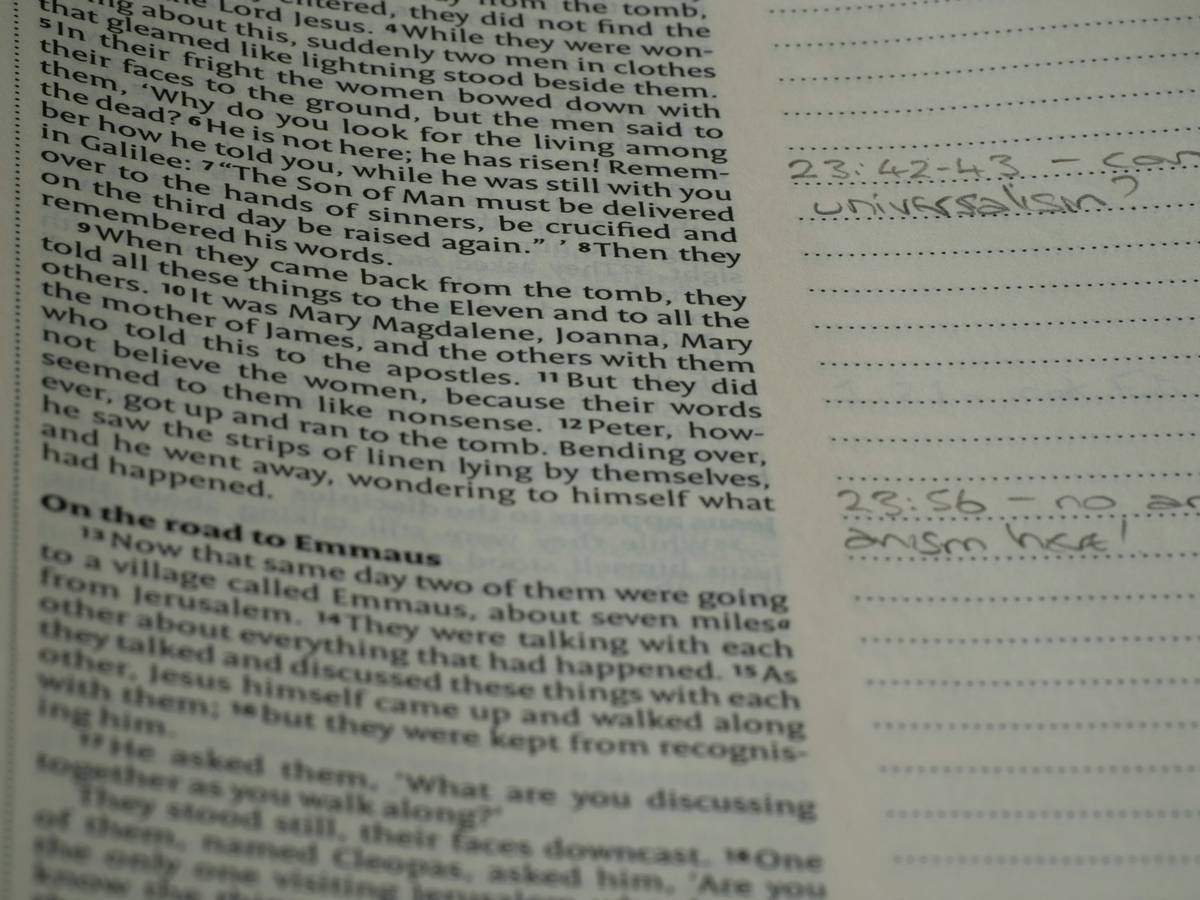 from the tomb,
entered, they did not find the
Lord Jesus. 4 While they were won-
about this, suddenly two men in clothes
that gleamed like lightning stood beside them.
5 In their fright the women bowed down with
their faces to the ground, but the men said to
them, ‘Why do you look for the living among
the dead? 6 He is not here; he has risen! Remem-
ber how he told you, while he was still with you
in Galilee: 7 “The Son of Man must be delivered
over to the hands of sinners, be crucified and
on the third day be raised again.” ’ 8 Then they
remembered his words.
9 When they came back from the tomb, they
told all these things to the Eleven and to all the
others. 10 It was Mary Magdalene, Joanna, Mary
the mother of James, and the others with them
who told this to the apostles. 11 But they did
not believe the women, because their words
seemed to them like nonsense. 12 Peter, how-
ever, got up and ran to the tomb. Bending over,
he saw the strips of linen lying by themselves,
and he went away, wondering to himself what
had happened.
On the road to Emmaus
13 Now that same day two of them were going
to a village called Emmaus, about seven miles a
from Jerusalem. 14 They were talking with each
other about everything that had happened. 15 As
they talked and discussed these things with each
other, Jesus himself came up and walked along
with them; 16 but they were kept from recognis-
ing him.
17 He asked them, ‘What are you discussing
together as you walk along?’
They stood still, their faces downcast. 18 One
of them, named Cleopas, asked him, ‘Are you
the only one visiting Jerusalem
know the
23:42-43 –
universalism?
23:56 – no
anism here!